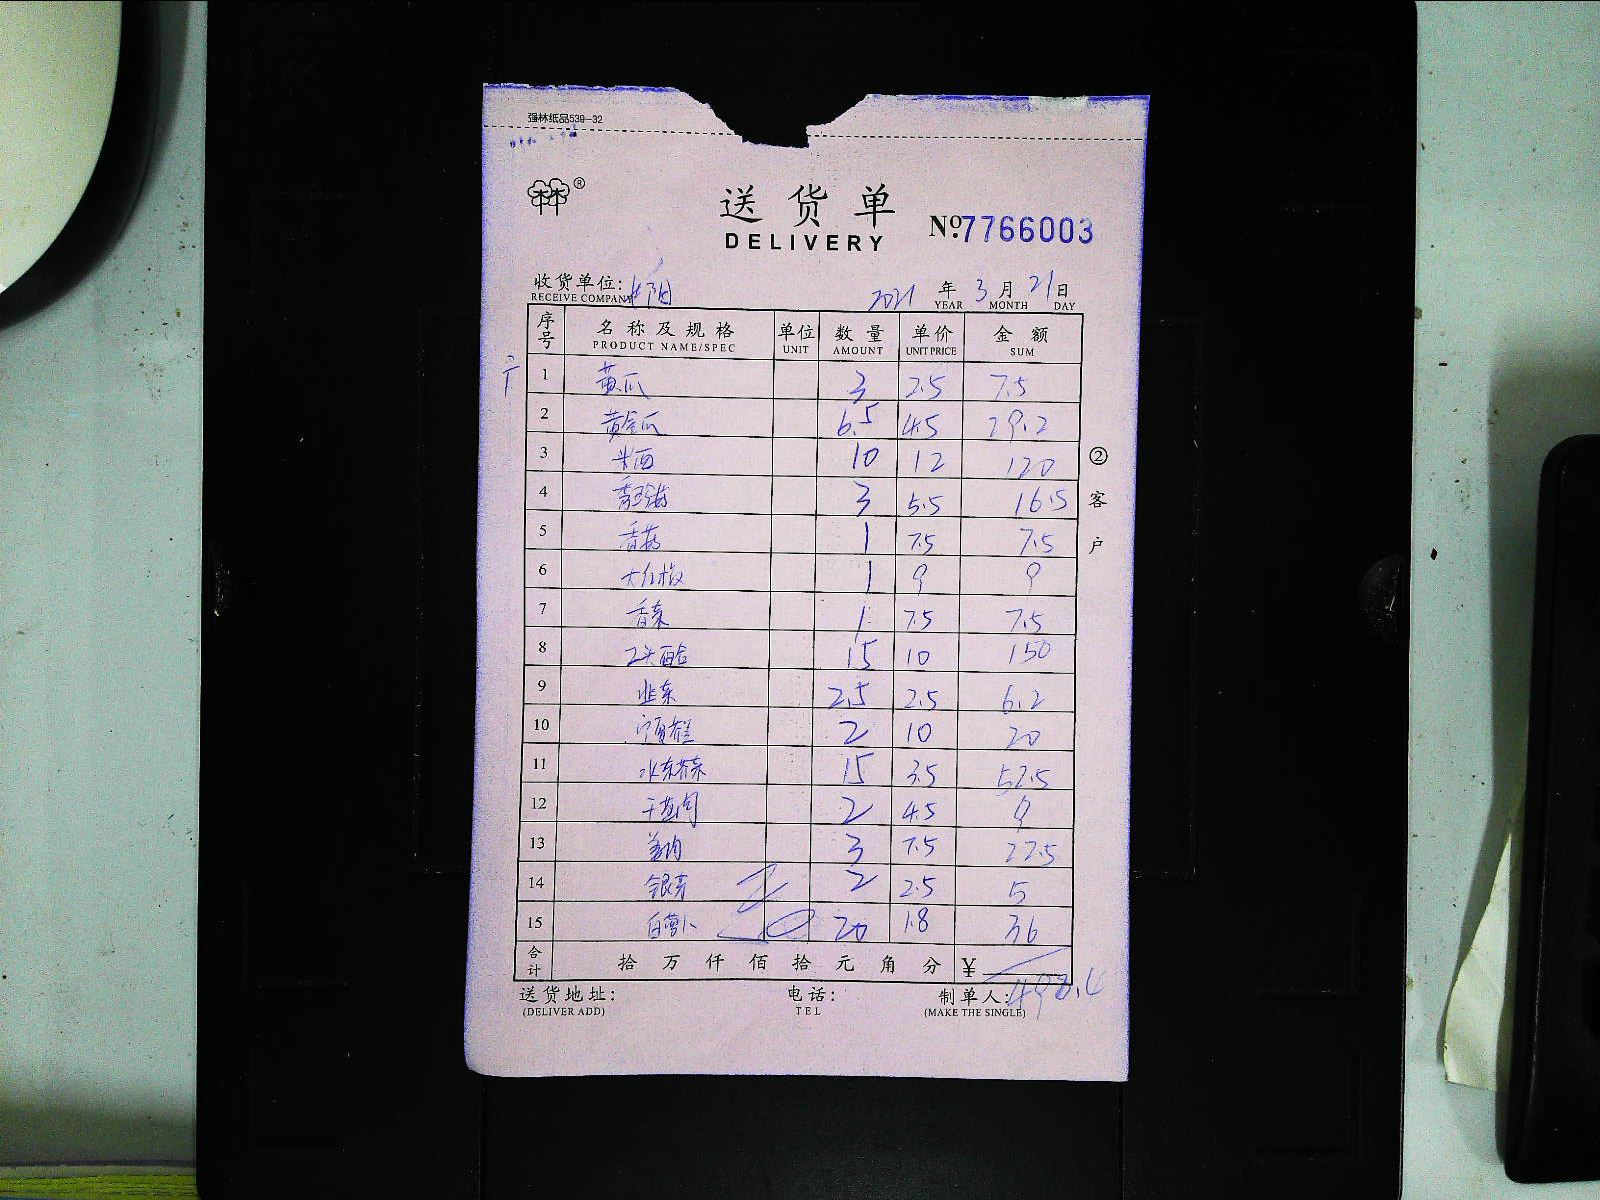 强林纸品539-32
送货单
DELIVERY
№:7766003
收货单位: 2021年3月21日
RECEIVE COMPANY YEAR MONTH DAY
序号 名称及规格 单位 数量 单价 金额
PRODUCT NAME/SPEC UNIT AMOUNT UNIT PRICE SUM
1 黄瓜 3 2.5 7.5
2 黄金瓜 6.5 4.5 29.2
3 10 12 120
4 3 5.5 16.5
5 香菇 1 7.5 7.5
6 大红椒 1 9 9
7 香菜 1 7.5 7.5
8 15 10 150
9 韭菜 2.5 2.5 6.2
10 2 10 20
11 水东芥菜 15 3.5 52.5
12 2 4.5 9
13 姜肉 3 7.5 22.5
14 银芽 2 2.5 5
15 白萝卜 20 1.8 36
合计 拾万仟佰拾元角分 ¥ 498.4
送货地址: 电话: 制单人:
(DELIVER ADD) TEL (MAKE THE SINGLE)
②客户